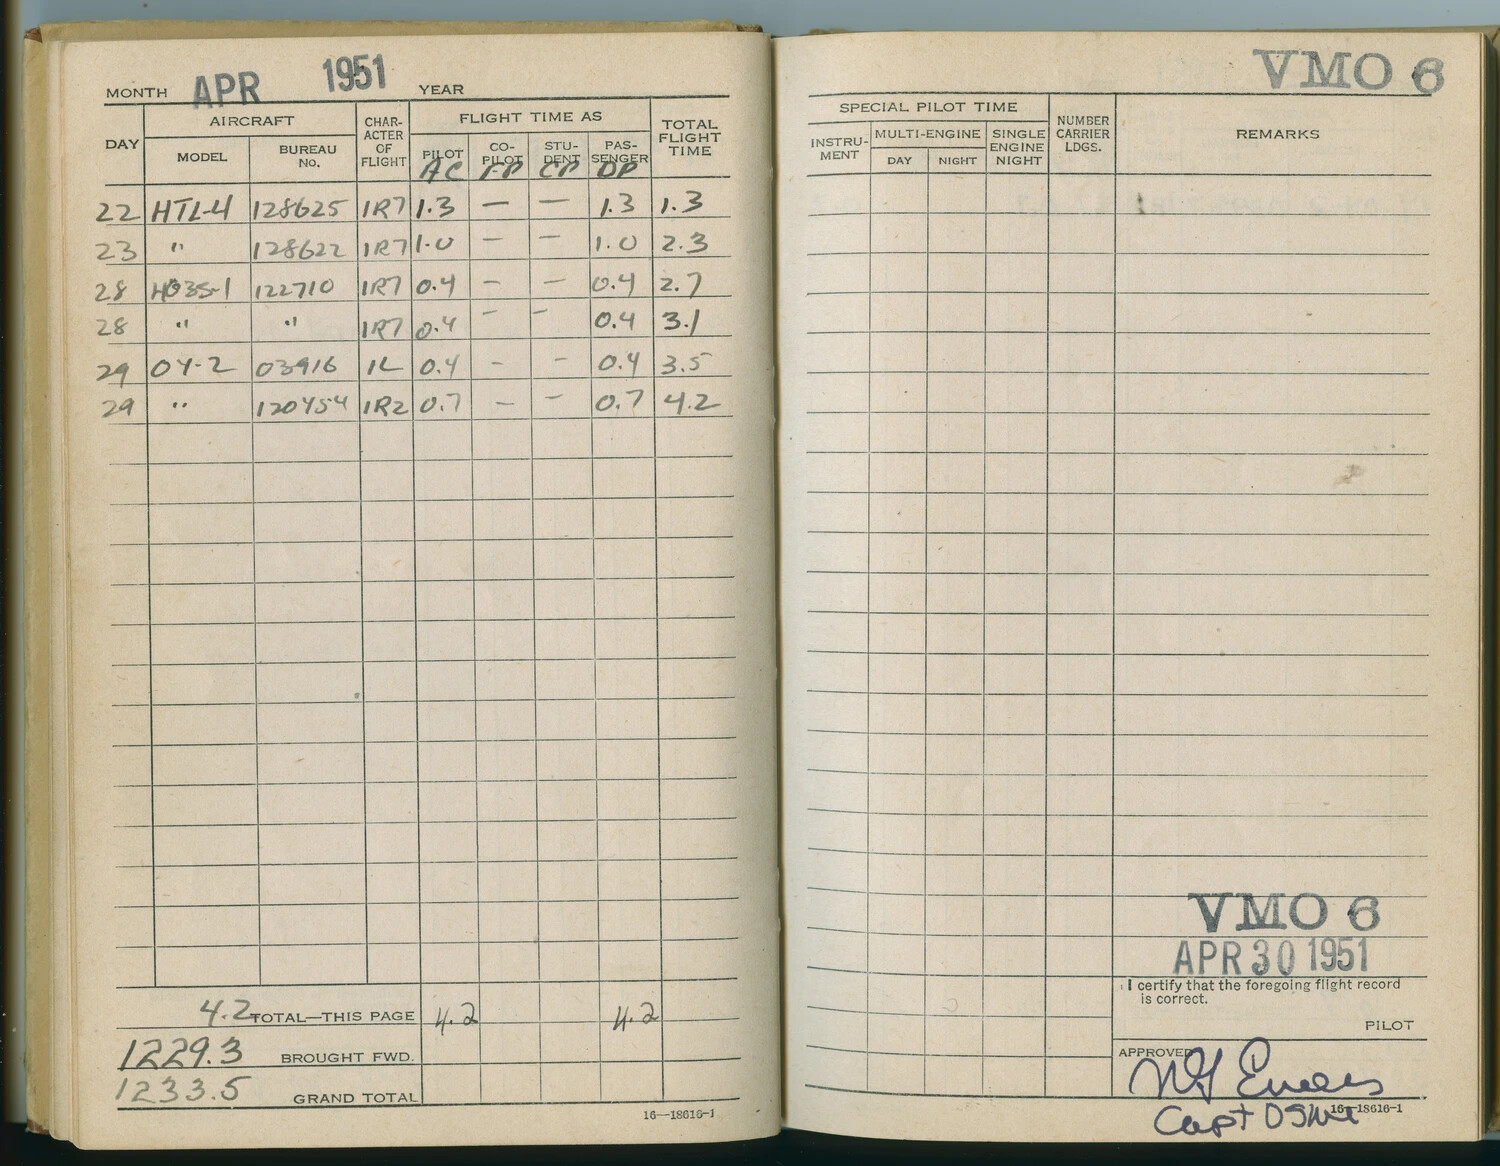 MONTH APR 1951 YEAR
DAY AIRCRAFT CHAR-ACTER OF FLIGHT FLIGHT TIME AS TOTAL FLIGHT TIME
MODEL BUREAU No. PILOT CO-PILOT STU-DENT PAS-SENGER
AC FP CP DP
22 HTL-4 128625 1R7 1.3 — — 1.3 1.3
23 " 128622 1R7 1.0 — — 1.0 2.3
28 HO3S-1 122710 1R7 0.4 — — 0.4 2.7
28 " " 1R7 0.4 — — 0.4 3.1
29 OY-2 03916 1L 0.4 - - 0.4 3.5
29 " 120454 1R2 0.7 — — 0.7 4.2
4.2 TOTAL—THIS PAGE 4.2 4.2
1229.3 BROUGHT FWD.
1233.5 GRAND TOTAL
16—18616-1
VMO 6
SPECIAL PILOT TIME NUMBER CARRIER LDGS. REMARKS
INSTRU-MENT MULTI-ENGINE SINGLE ENGINE NIGHT
DAY NIGHT
VMO 6
APR 30 1951
I certify that the foregoing flight record
is correct.
PILOT
APPROVED
Capt
16—18616-1